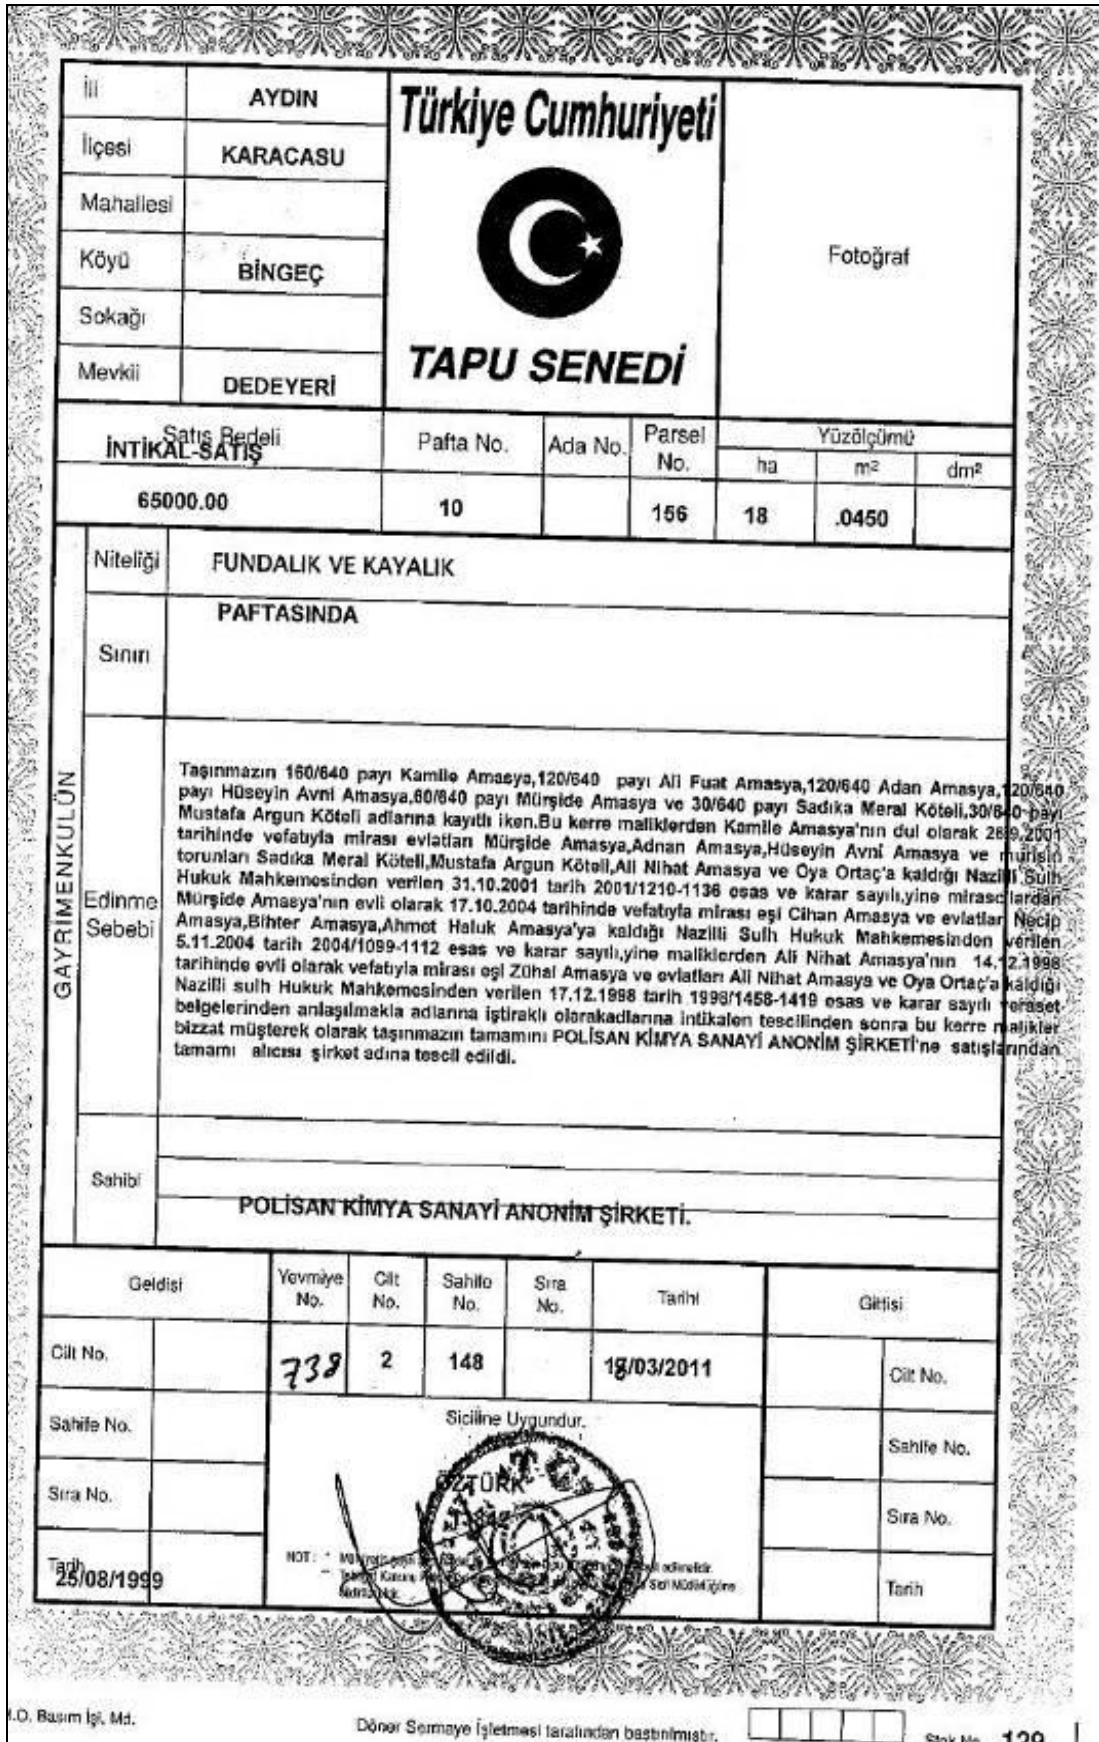 İli AYDIN
İlçesi KARACASU
Mahallesi
Köyü BİNGEÇ
Sokağı
Mevkii DEDEYERİ
Türkiye Cumhuriyeti
TAPU SENEDİ
Fotoğraf
Satış Bedeli Pafta No. Ada No. Parsel No. Yüzölçümü
İNTİKAL-SATIŞ ha m² dm²
65000.00 10 156 18 .0450
GAYRİMENKULÜN
Niteliği FUNDALIK VE KAYALIK
Sınırı PAFTASINDA
Edinme Sebebi
Taşınmazın 160/640 payı Kamile Amasya,120/640 payı Ali Fuat Amasya,120/640 Adan Amasya,120/640
payı Hüseyin Avni Amasya,60/640 payı Mürşide Amasya ve 30/640 payı Sadıka Meral Köteli,30/640 payı
Mustafa Argun Köteli adlarına kayıtlı iken.Bu kerre maliklerden Kamile Amasya'nın dul olarak 26.9.2001
tarihinde vefatıyla mirası evlatları Mürşide Amasya,Adnan Amasya,Hüseyin Avni Amasya ve murisin
torunları Sadıka Meral Köteli,Mustafa Argun Köteli,Ali Nihat Amasya ve Oya Ortaç'a kaldığı Nazilli Sulh
Hukuk Mahkemesinden verilen 31.10.2001 tarih 2001/1210-1136 esas ve karar sayılı,yine mirascılardan
Mürşide Amasya'nın evli olarak 17.10.2004 tarihinde vefatıyla mirası eşi Cihan Amasya ve evlatları Necip
Amasya,Bihter Amasya,Ahmet Haluk Amasya'ya kaldığı Nazilli Sulh Hukuk Mahkemesinden verilen
5.11.2004 tarih 2004/1099-1112 esas ve karar sayılı,yine maliklerden Ali Nihat Amasya'nın 14.12.1998
tarihinde evli olarak vefatıyla mirası eşi Zühal Amasya ve evlatları Ali Nihat Amasya ve Oya Ortaç'a kaldığı
Nazilli sulh Hukuk Mahkemesinden verilen 17.12.1998 tarih 1998/1458-1419 esas ve karar sayılı veraset
belgelerinden anlaşılmakla adlarına iştiraklı olarakadlarına intikalen tescilinden sonra bu kerre malikler
bizzat müşterek olarak taşınmazın tamamını POLİSAN KİMYA SANAYİ ANONİM ŞİRKETİ'ne satışlarından
tamamı alıcısı şirket adına tescil edildi.
Sahibi
POLİSAN KİMYA SANAYİ ANONİM ŞİRKETİ.
Geldisi Yevmiye No. Cilt No. Sahife No. Sıra No. Tarihi Gittisi
Cilt No. 738 2 148 /03/2011 Cilt No.
Siciline Uygundur.
Sahife No. Sahife No.
ÖZTÜRK
Sıra No. Sıra No.
NOT :
Sicil Müdürlüğüne
Tarih Tarih
25/08/1999
Basım İşl. Md.
Döner Sermaye İşletmesi tarafından bastırılmıştır.
Stok No. 129